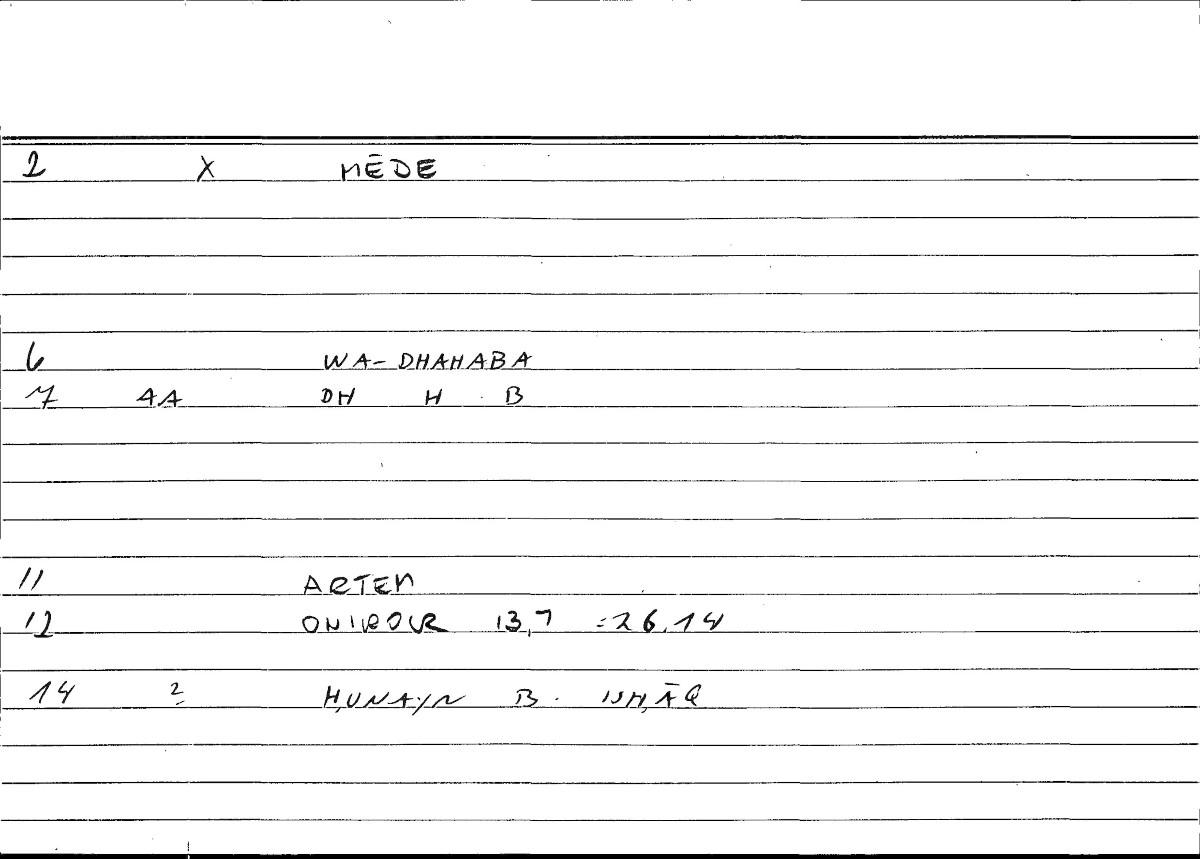 2 X MĒDE
6 WA-DHAHABA
7 AA DH H B
11 ARTEM
12 ONIROCR 13,7 =26,14
14 2 ḤUNAYN B. ISḤĀQ